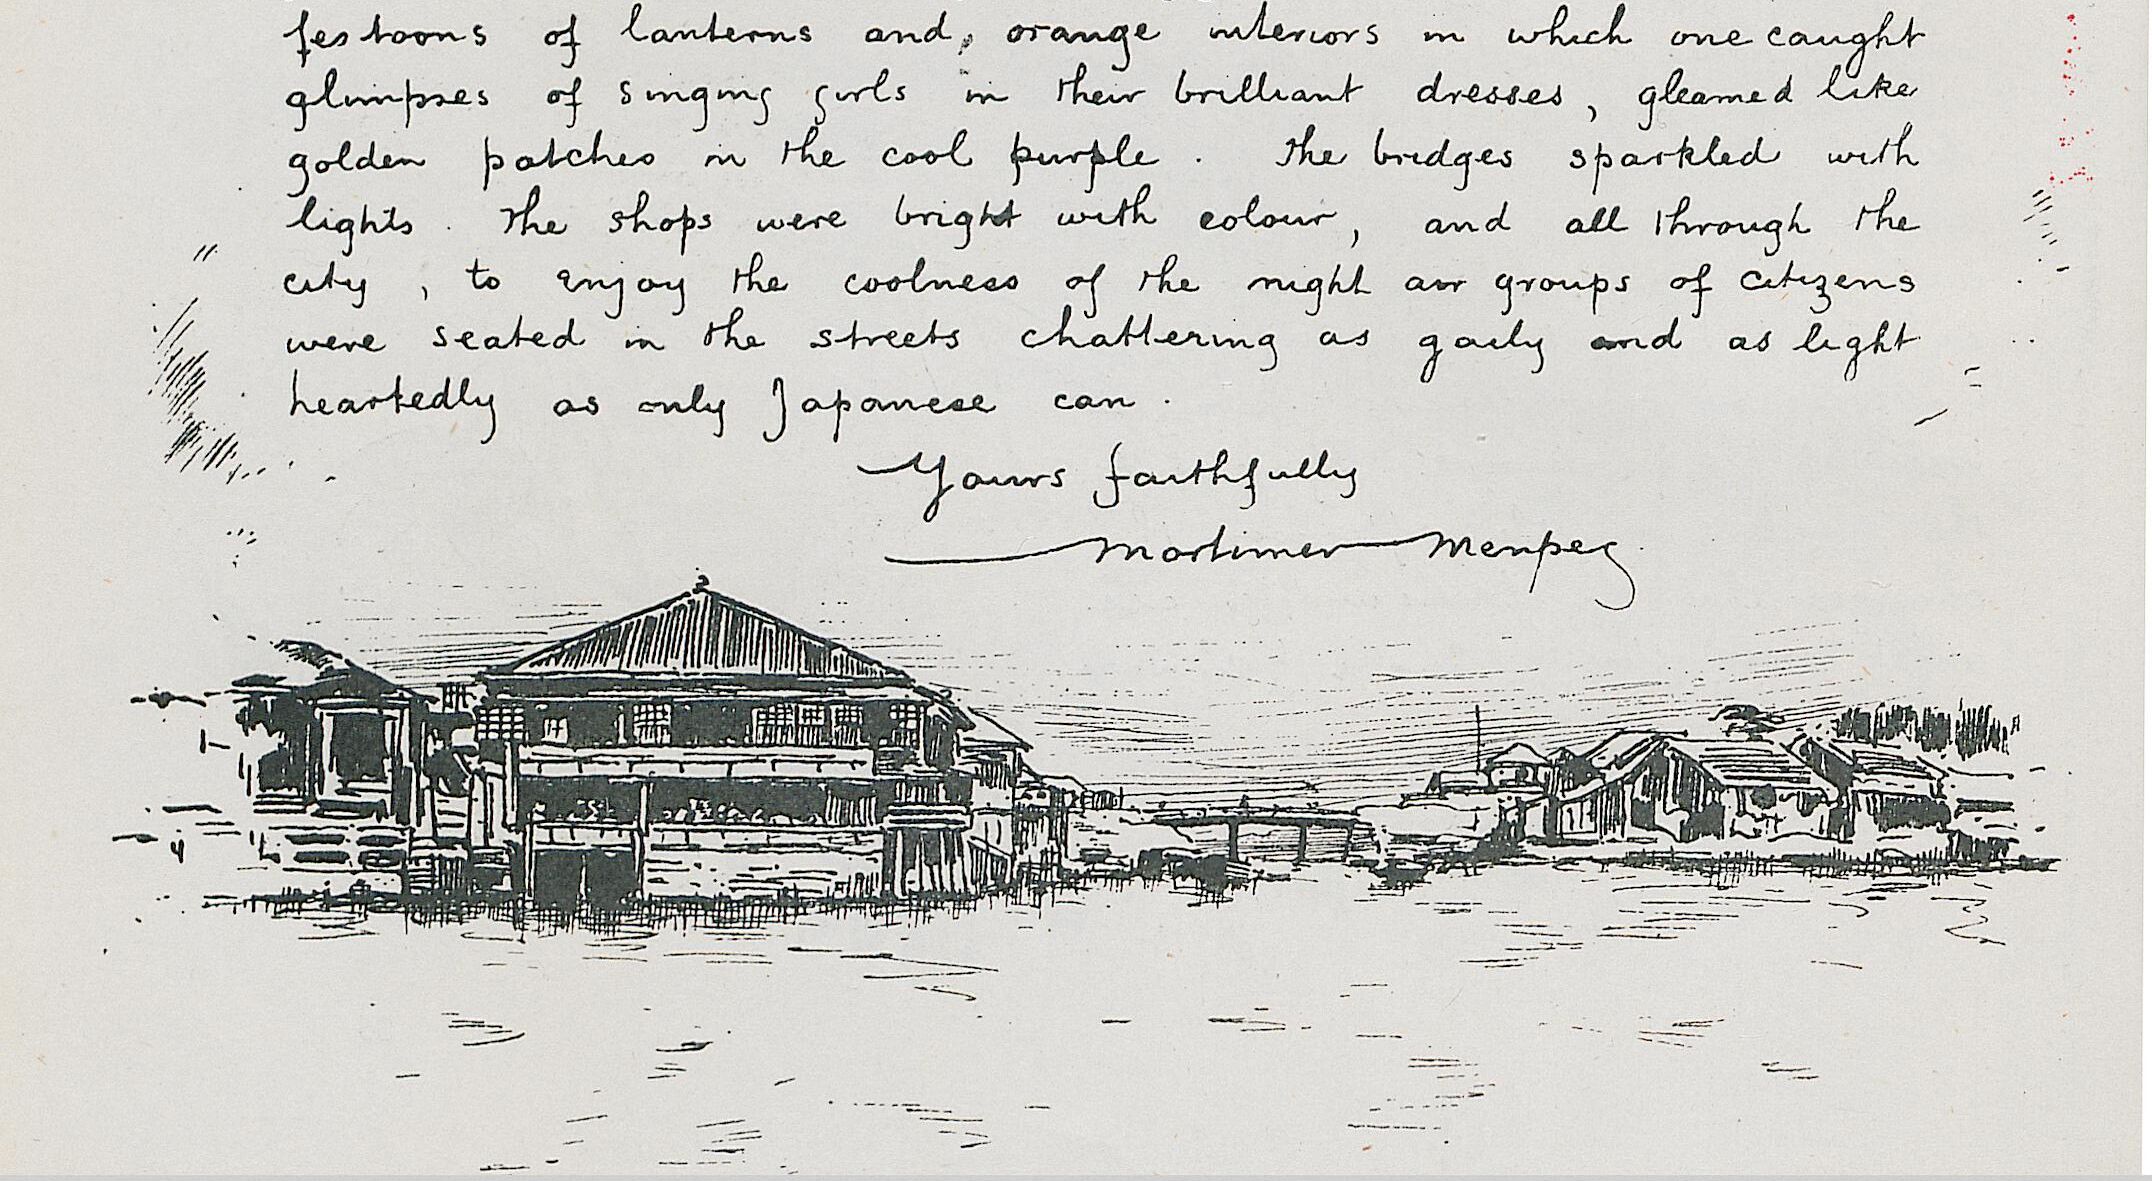 festoons of lanterns and, orange interiors in which one caught
glimpses of singing girls in their brilliant dresses, gleamed like
golden patches in the cool purple. The bridges sparkled with
lights. The shops were bright with colour, and all through the
city, to enjoy the coolness of the night air groups of citizens
were seated in the streets chattering as gaily and as light
heartedly as only Japanese can.
Yours faithfully
Mortimer Menpes